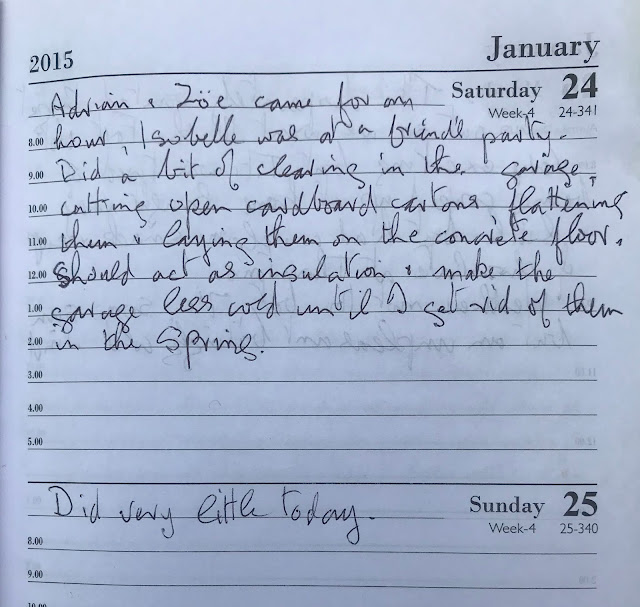 2015 January
Saturday 24
Week-4 24-341
Adrian & Zöe came for an
8.00 hour, Isobelle was at a friend's party.
9.00 Did a bit of clearing in the garage,
10.00 cutting open cardboard cartons flattening
11.00 them & laying them on the concrete floor.
12.00 Should act as insulation & make the
1.00 garage less cold until I get rid of them
2.00 in the Spring.
3.00
4.00
5.00
Did very little today.
Sunday 25
Week-4 25-340
8.00
9.00
10.00